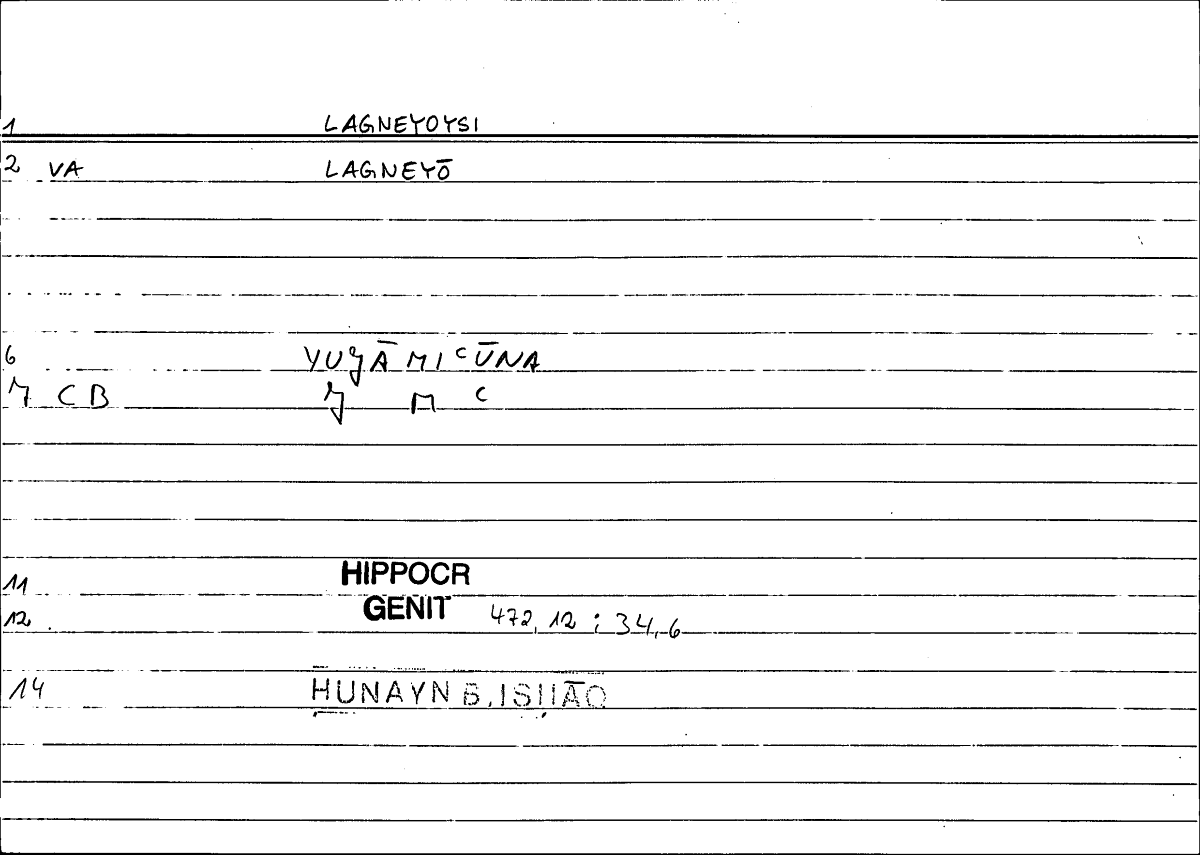 1 LAGNEYOYSI
2 VA LAGNEYŌ
6 YUǧĀMIᶜŪNA
7 CB ǧ M ᶜ
11 HIPPOCR
12 GENIT 472,12 ; 34,6
14 ḤUNAYN B. ISḤĀQ